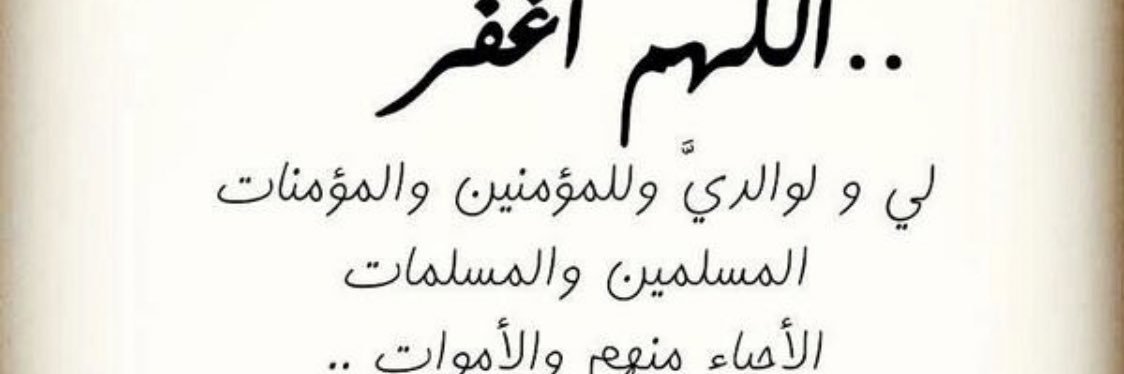 ..اللهم اغفر
لي و لوالديَّ وللمؤمنين والمؤمنات
المسلمين والمسلمات
الأحياء منهم والأموات ..